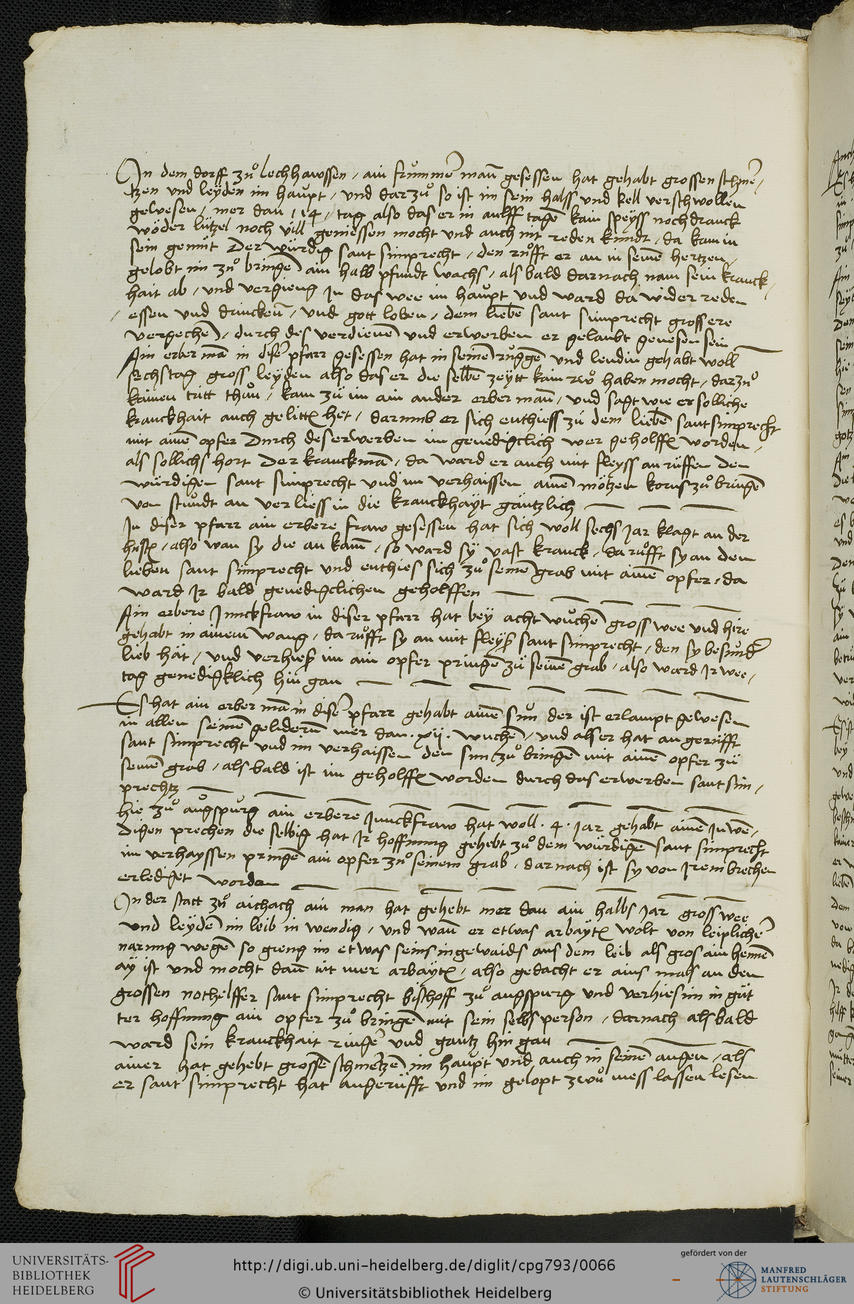 In dem dorff zuͦ lechhawssen / ain frummer man̄ gesessen hat gehabt grossen schmer/
tzen vnd leyden im haupt / vnd dar zuͦ so ist im sein halss vnd kell verschwollen
gewesen / mer dan 114 / tag also das er in ailff tagē kain speyss noch dranck
wöder lützel noch vill geniessen mocht vnd auch nit reden kundt / da kam in
sein gemüt Der würdig sant simprecht / den rufft er an in seinē hertzen /
gelobt im zuͦ bringē ain halb pfundt wachs / als bald darnach nam sein kranck/
hait ab / vnd vergieng Im das wee im haupt vnd ward da wider reden
essen vnd drincken / vnd gott loben / dem liebē sant simprecht gross ere
vergechē / durch des verdienē vnd erwerben er gelaubt genesen sein
Ain erber mā in diser pfarr gesessen hat in seinē ruggē vnd lendin gehabt woll
sechs tag gross leyden also das er die selbē zeytt kain ruͦ haben mocht / dar zuͦ
kainen tritt thuͦn / kam zu im ain ander erber man̄ / vnd sagt wie er solliche
kranckhait auch gelitten het / darumb er sich enthiess zu dem liebē sant simprecht
mit ainē opfer Durch des erwerben im genedigclich wer geholffen worden /
als sollichs hort Der kranck mā / da ward er auch mit fleyss an rüffen den
würdigen sant simprecht vnd im verhaissen ainē mötzen korns zuͦ bringē
von stundt an verliess in die kranckhayt gäntzlich
In diser pfarr ain erbere fraw gesessen hat sich woll sechs jar klagt an der
huesten / also wan sy die an kam / so ward sy vast kranck / da rüfft sy an den
lieben sant simprecht vnd enthies sich zuͦ seinē grab mit ainē opfer / da
ward Ir bald genedigclichen geholffen
Ain erbere Junckfraw in diser pfarr hat bey acht wuchē gross wee vnd hitz
gehabt in ainem wang / da rufft sy an mit fleys sant simprecht / den sy besunder
lieb hat / vnd verhies im ain opfer pringē zu seinē grab / also ward Ir wee/
tag genedigklich hin gan
Es hat ain erber mā in diser pfarr gehabt ainē sun der ist erlampt gewesen
in allen seinē gelidern mer dan .xij. wuchē / vnd als er hat an gerüfft
sant simprecht vnd im verhaissen den sun zuͦ bringē mit ainē opfer zu
seinē grab / als bald ist im geholffen worden durch das erwerben sant sim/
prechtz
hie zuͦ augspurg ain erbere junckfraw hat woll .4. jar gehabt ainē Inwen/
digen prechen die selbig hat Ir hoffnung gehebt zuͦ dem würdigē sant simprecht
im verhayssen pringē ain opfer zuͦ seinem grab / darnach ist sy von Irem brechen
erlediget worden
In der statt zuͦ aichach ain man hat gehebt mer dan ain halbs jar gross wee
vnd leydē im leib in wendig / vnd wan̄ er etwas arbayten wolt von leiplicher
narung wegē so gieng im etwas seins ingewaids aus dem leib als gros ain hennē
ay ist vnd mocht dan̄ nit mer arbayten / also gedacht er ains mals an den
grossen nothelffer sant simprecht bischoff zuͦ augspurg vnd verhies im in güt
ter hoffnung ain opfer zuͦ bringē mit sein selbs person / darnach als bald
ward sein kranckhait ringer vnd gantz hin gan
ainer hat gehebt grosse schmertzē im haupt vnd auch in seinē augen / als
er sant simprecht hat angerüfft vnd im gelopt zwuͦ mess lassen lesen
UNIVERSITÄTS-
BIBLIOTHEK
HEIDELBERG
http://digi.ub.uni-heidelberg.de/diglit/cpg793/0066
© Universitätsbibliothek Heidelberg
gefördert von der
MANFRED
LAUTENSCHLÄGER
STIFTUNG